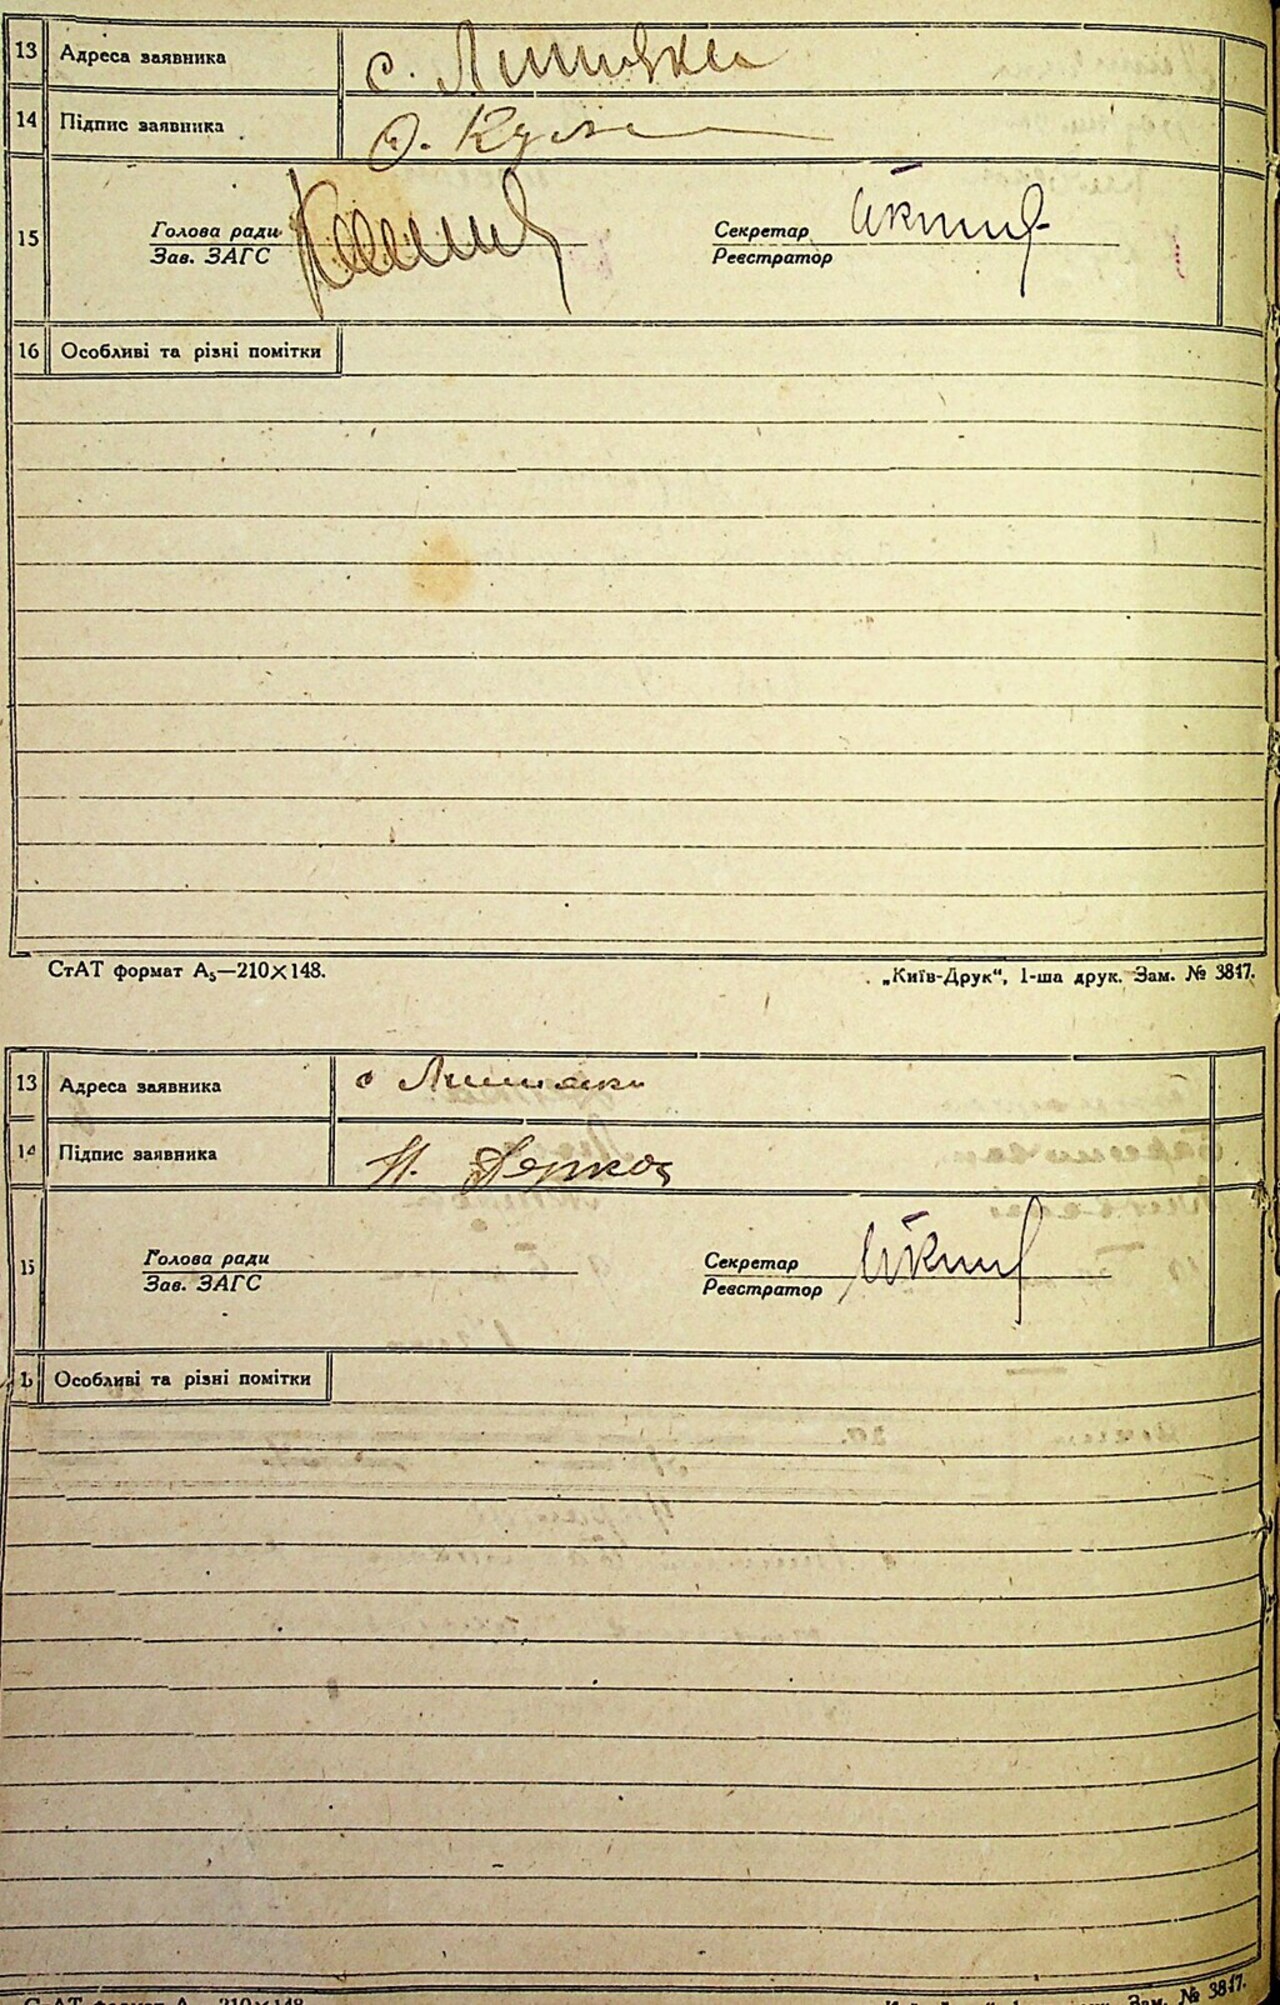 13 Адреса заявника с. Липлявка
14 Підпис заявника О.
15 Голова ради Секретар
Зав. ЗАГС Реєстратор
16 Особливі та різні помітки
СтАТ формат А₅—210×148. „Київ-Друк“, 1-ша друк. Зам. № 3817.
13 Адреса заявника с
14 Підпис заявника Н. Деркач
15 Голова ради Секретар
Зав. ЗАГС Реєстратор
Особливі та різні помітки
СтАТ формат А 210×148 Зам. № 3817.